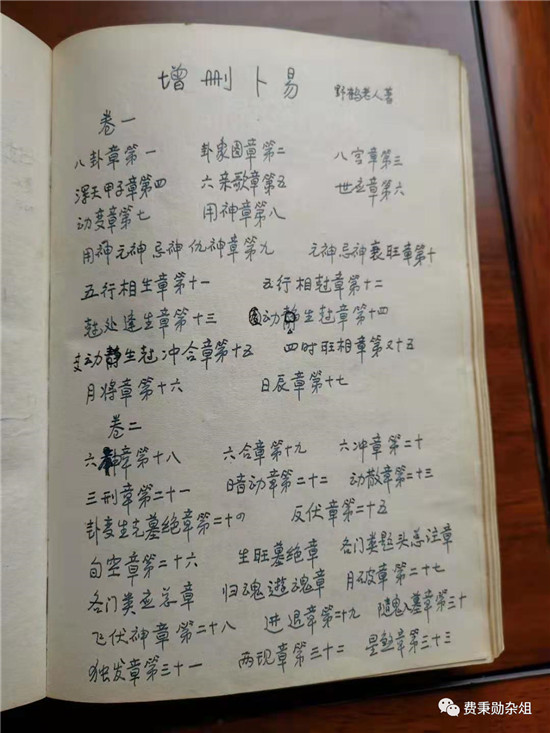 增删卜易 野鹤老人著
卷一
八卦章第一 卦象图章第二 八宫章第三
浑天甲子章第四 六亲歌章第五 世应章第六
动变章第七 用神章第八
用神元神忌神仇神章第九 元神忌神衰旺章第十
五行相生章第十一 五行相尅章第十二
尅处逢生章第十三 动静生尅章第十四
变动静生尅冲合章第十五 四时旺相章第又十五
月将章第十六 日辰章第十七
卷二
六神章第十八 六合章第十九 六冲章第二十
三刑章第二十一 暗动章第二十二 动散章第二十三
卦变生克墓绝章第二十四 反伏章第二十五
旬空章第二十六 生旺墓绝章 各门类题头总注章
各门类应总章 归魂遊魂章 月破章第二十七
飞伏神章第二十八 进退章第二十九 随鬼入墓章第三十
独发章第三十一 两现章第三十二 星煞章第三十三
费秉勋杂俎